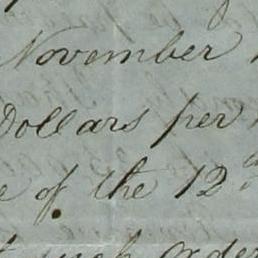 November
Dollars per
of the 12th
such order